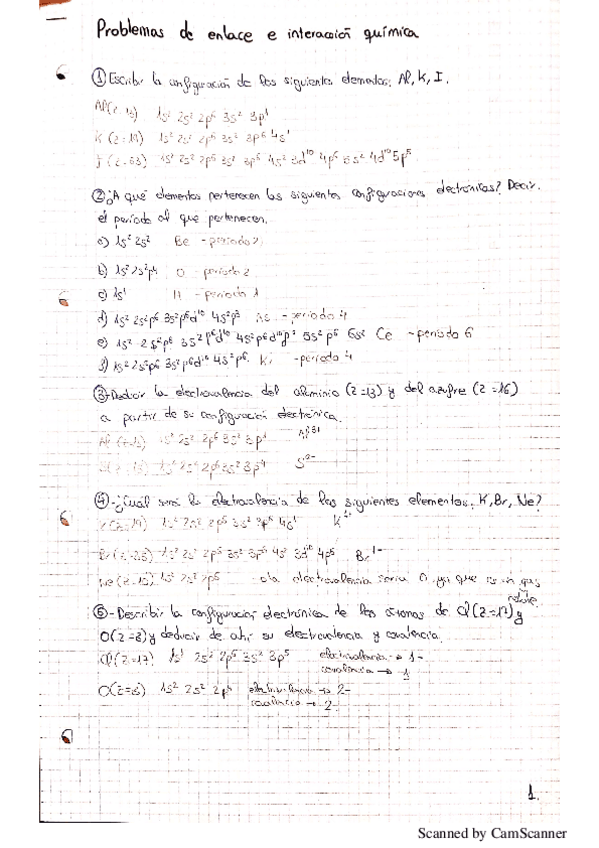 Problemas de enlace e interacción química
① Escribir la configuración de los siguientes elementos: Al, K, I.
Al (z=13) 1s² 2s² 2p⁶ 3s² 3p¹
K (z=19) 1s² 2s² 2p⁶ 3s² 3p⁶ 4s¹
1s² 2s² 2p⁶ 3s² 3p⁶ 4s² 3d¹⁰ 4p⁶ 5s² 4d¹⁰ 5p⁵
② ¿A qué elementos pertenecen las siguientes configuraciones electrónicas? Decir.
el período al que pertenecen.
a) 1s² 2s² Be - periodo 2
b) 1s² 2s² p⁴ O - periodo 2
c) 1s¹ H - periodo 1
d) 1s² 2s² p⁶ 3s² p⁶ d¹⁰ 4s² p³ As - periodo 4
e) 1s² 2s² p⁶ 3s² p⁶ d¹⁰ 4s² p⁶ d¹⁰ 5s² p⁶ 6s² Ce - periodo 6
1s² 2s² p⁶ 3s² p⁶ d¹⁰ 4s² p⁶ - periodo 4
③- Deducir la electrovalencia del aluminio (z=13) y del azufre (z=16)
a partir de su configuración electrónica.
Al (z=13) 1s² 2s² 2p⁶ 3s² 3p¹ Al³⁺
1s² 2s² 2p⁶ 3s² 3p⁴ S²⁻
④- ¿Cuál será la electrovalencia de los siguientes elementos: K, Br, Ne?
K (z=19) 1s² 2s² 2p⁶ 3s² 3p⁶ 4s¹ K
Br 1s² 2s² 2p⁶ 3s² 3p⁶ 4s² 3d¹⁰ 4p⁵ Br¹⁻
Ne (z=10) 1s² 2s² 2p⁶ la electrovalencia seria 0 ya que es un gas
noble
⑤- Describir la configuración electrónica de los átomos de Cl (z=17) y
O (z=8) y deducir de ahí su electrovalencia y covalencia.
Cl (z=17) 1s² 2s² 2p⁶ 3s² 3p⁵ electrovalencia → 1-
covalencia → 1
O (z=8) 1s² 2s² 2p⁴ electrovalencia → 2-
covalencia → 2
1.
Scanned by CamScanner